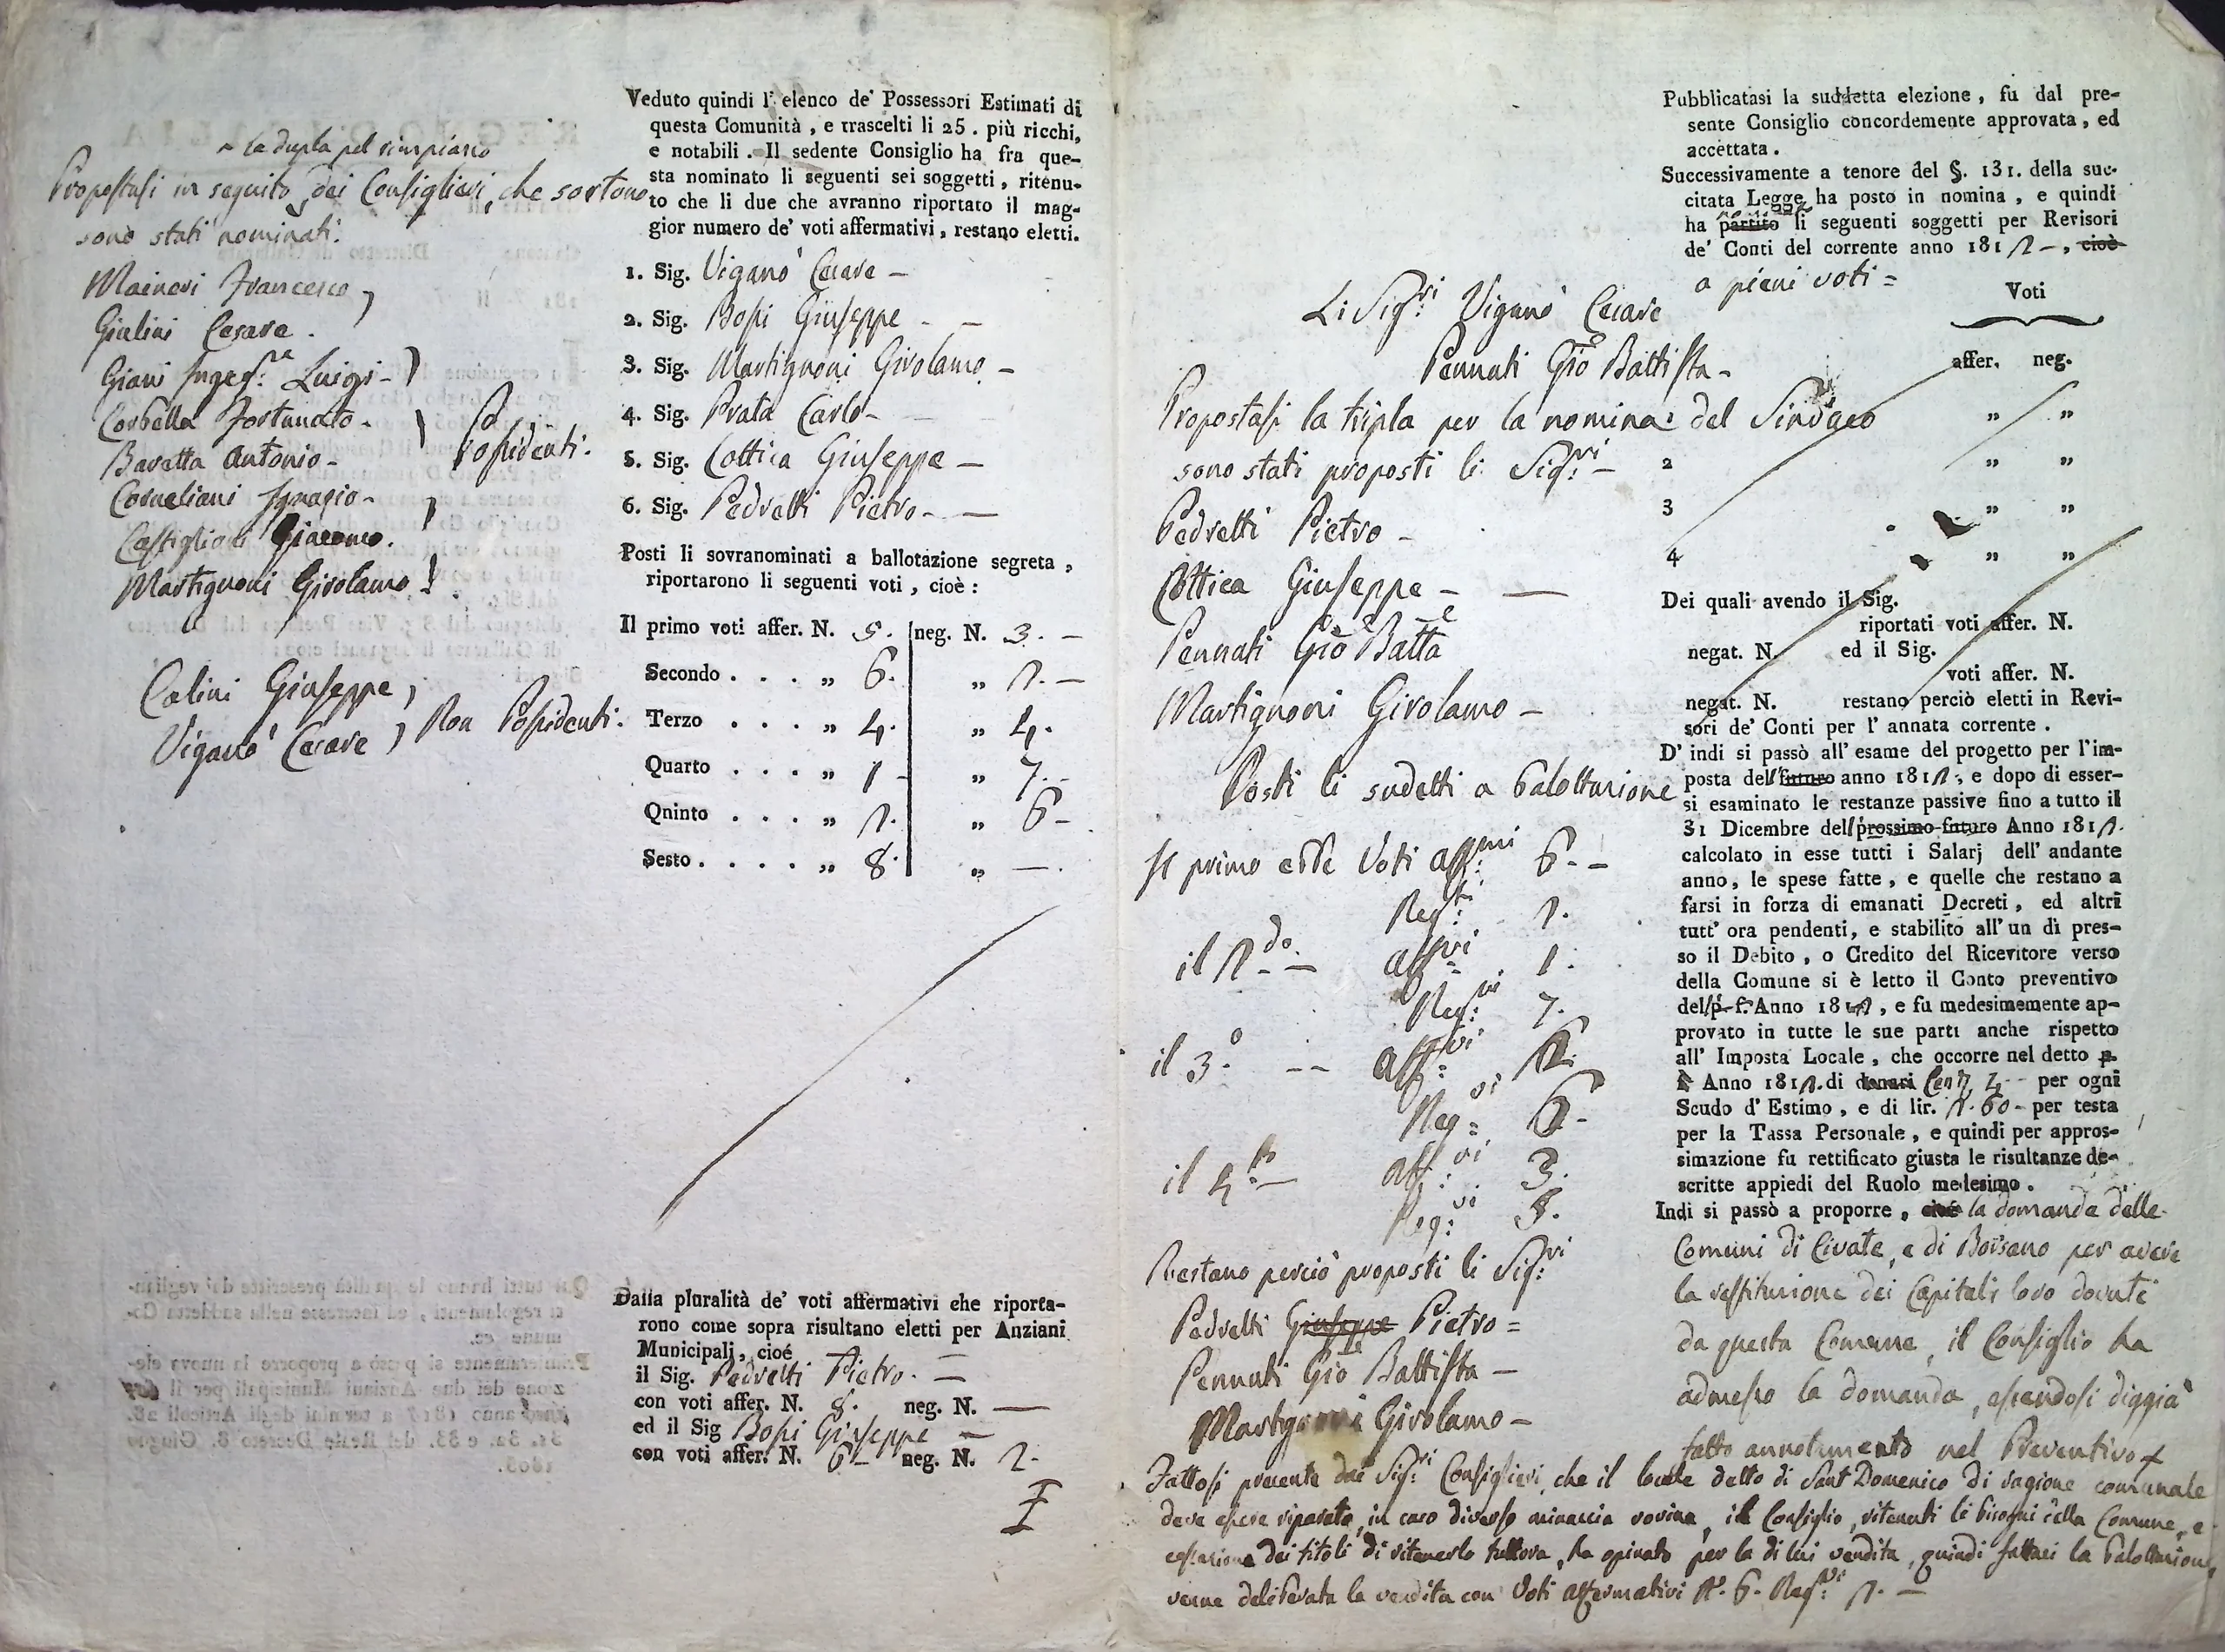 la dupla pel rimpiazzo
Propostasi in seguito dei Consiglieri, che sortono
sono stati nominati.
Maineri Francesco
Giulini Cesare.
Giani Luigi -
Corbella Fortunato -
Baretta Antonio -
Corneliani Ignazio -
Castiglioni Giacomo.
Martignoni Girolamo
Possidenti.
Colini Giuseppe
Viganò Cesare
Non Possidenti.
Veduto quindi l' elenco de' Possessori Estimati di
questa Comunità, e trascelti li 25. più ricchi,
e notabili. Il sedente Consiglio ha fra que-
sta nominato li seguenti sei soggetti, ritenu-
to che li due che avranno riportato il mag-
gior numero de' voti affermativi, restano eletti.
1. Sig. Viganò Cesare -
2. Sig. Bossi Giuseppe - -
3. Sig. Martignoni Girolamo -
4. Sig. Prata Carlo -
5. Sig. Cottica Giuseppe -
6. Sig. Pedretti Pietro - -
Posti li sovranominati a ballotazione segreta,
riportarono li seguenti voti, cioè:
Il primo voti affer. N. 5. neg. N. 3. -
Secondo . . . „ 6. „ 2. -
Terzo . . . . „ 4. „ 4.
Quarto . . . . „ 1 - „ 7. -
Qninto . . . . „ 2. „ 6 -
Sesto . . . . „ 8. „ —.
Dalla pluralità de' voti affermativi che riporta-
rono come sopra risultano eletti per Anziani
Municipali, cioé
il Sig. Pedretti Pietro. -
con voti affer. N. 8. neg. N. —
ed il Sig Bossi Giuseppe -
con voti affer. N. 6 - neg. N. 2.
Pubblicatasi la suddetta elezione, fu dal pre-
sente Consiglio concordemente approvata, ed
accettata.
Successivamente a tenore del §. 131. della suc-
citata Legge ha posto in nomina, e quindi
ha partito li seguenti soggetti per Revisori
de' Conti del corrente anno 1812 -, cioè
a pieni voti =
Voti
affer. neg.
„ „
2 „ „
3 „ „
4 „ „
Dei quali avendo il Sig.
riportati voti affer. N.
negat. N. ed il Sig.
voti affer. N.
negat. N. restano perciò eletti in Revi-
sori de' Conti per l' annata corrente.
D' indi si passò all' esame del progetto per l'im-
posta dell' futuro anno 1812., e dopo di esser-
si esaminato le restanze passive fino a tutto il
31 Dicembre dell' prossimo futuro Anno 1812.
calcolato in esse tutti i Salarj dell' andante
anno, le spese fatte, e quelle che restano a
farsi in forza di emanati Decreti, ed altri
tutt' ora pendenti, e stabilito all' un dì pres-
so il Debito, o Credito del Ricevitore verso
della Comune si è letto il Conto preventivo
dell' p. f. Anno 1812, e fu medesimemente ap-
provato in tutte le sue parti anche rispetto
all' Imposta Locale, che occorre nel detto p.
f. Anno 1812. di denari per ogni
Scudo d' Estimo, e di lir. 2.60 - per testa
per la Tassa Personale, e quindi per appros-
simazione fu rettificato giusta le risultanze de-
scritte appiedi del Ruolo medesimo.
Indi si passò a proporre, cioè la domanda delle
Comuni di Civate, e di Borsano per avere
la restituzione dei Capitali loro dovuti
da questa Comune, il Consiglio ha
admesso la domanda, essendosi diggià
fatto annotamento nel Preventivo
Li Sig:ri Viganò Cesare
Pennati Gio Battista -
Propostasi la tripla per la nomina del Sindaco
sono stati proposti li Sig:ri -
Pedretti Pietro -
Cottica Giuseppe - —
Pennati Gio Batta
Martignoni Girolamo -
Posti li sudetti a balottazione
Il primo ebbe Voti aff:mi 6. -
Neg:ti 2.
il 2.do - aff:vi 1.
Neg:vi 7.
il 3.o -- aff:vi
Neg:vi
il 4.to - aff:vi 3.
Neg:vi 5.
Restano perciò proposti li Sig:ri
Pedretti Giuseppe Pietro =
Pennati Gio Battista -
Martignoni Girolamo -
Fattosi presente dai Sig:ri Consiglieri, che il locale detto di Sant Domenico di ragione comunale
deve essere riparato, in caso diverso minaccia rovina, il Consiglio, ritenuti li bisogni della Comune, e
cessazione dei titoli di ritenerlo tuttora, ha opinato per la di lui vendita, quindi fattasi la balottazione
venne deliberata la vendita con Voti affermativi N. 6. Neg:vi 2. -